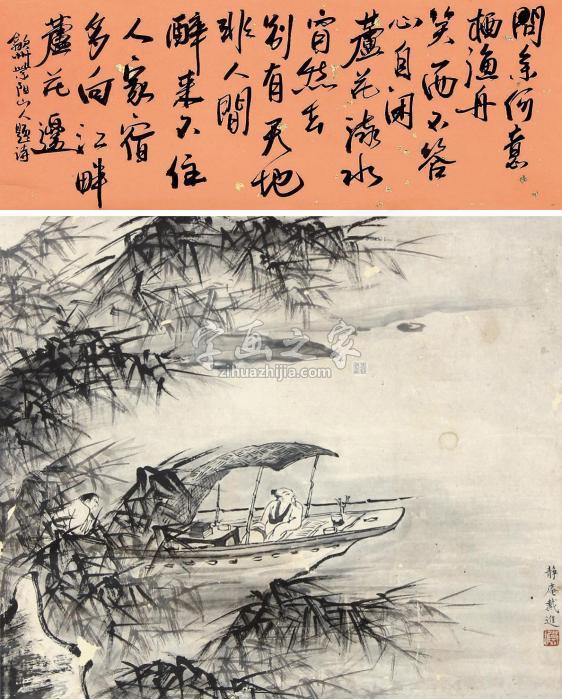 問余何意
栖漁舟
笑而不答
心自闲
蘆花流水
窅然去
别有天地
非人間
醉来不住
人家宿
多向江畔
蘆花邊
紫阳山人题诗
字画之家
zihuazhijia.com
靜庵戴進